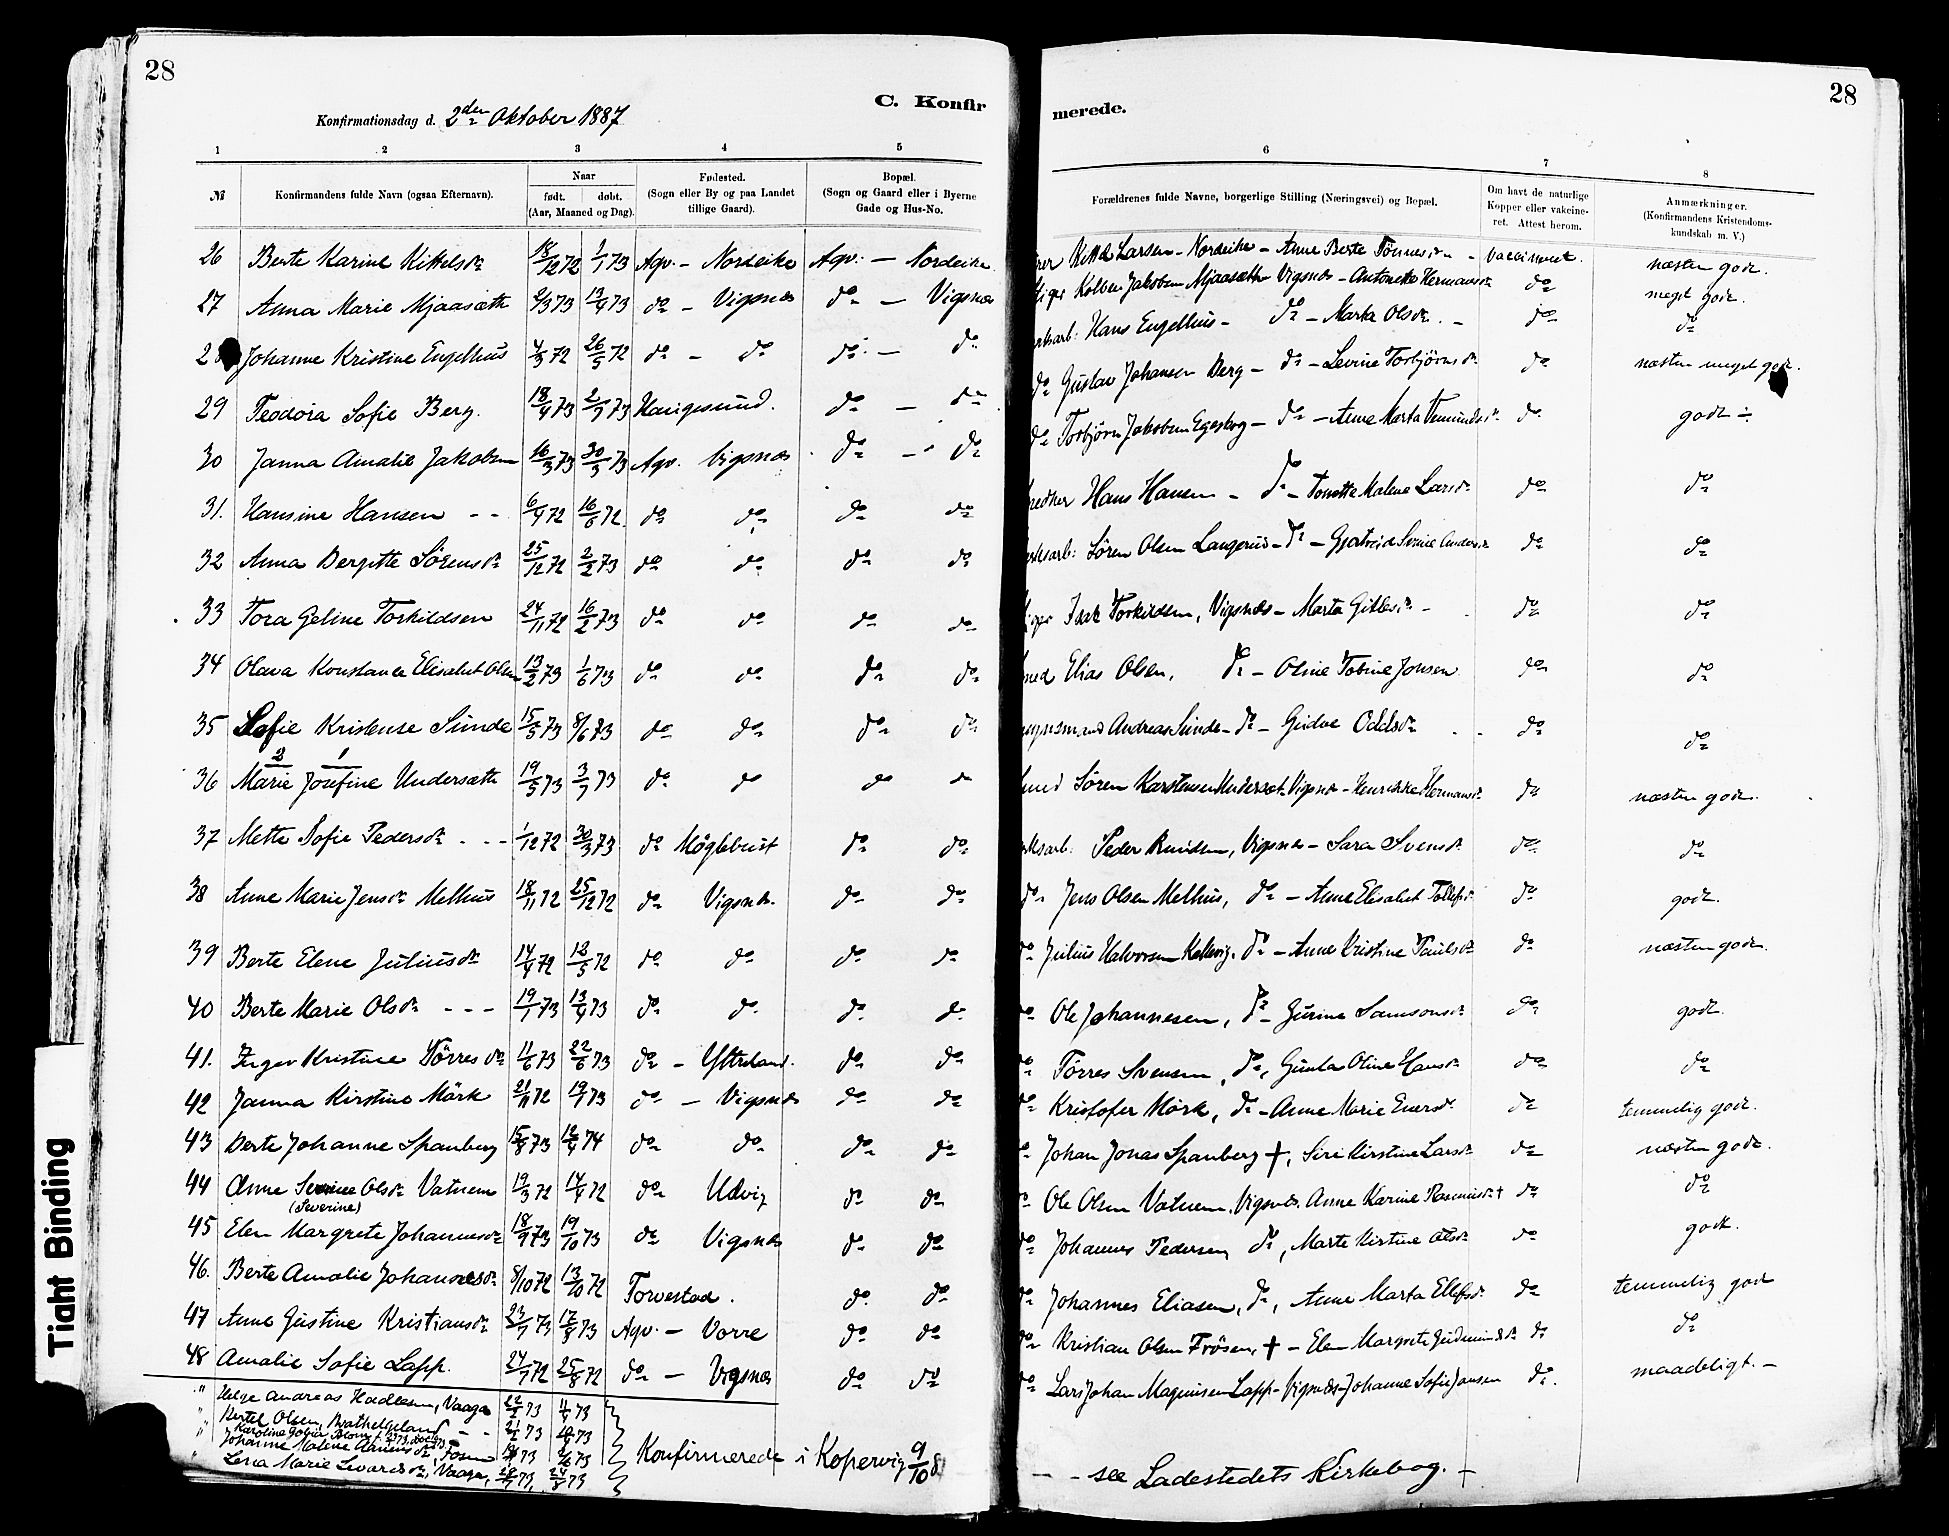 28
28
C. Konfir
merede.
Konfirmationsdag d. 2den Oktober 1887
1 2 3 4 5 6 7 8
№ Konfirmandens fulde Navn (ogsaa Efternavn). Naar født. døbt. (Aar, Maaned og Dag). Fødested. (Sogn eller By og paa Landet tillige Gaard). Bopæl. (Sogn og Gaard eller i Byerne Gade og Hus-No. Forældrenes fulde Navne, borgerlige Stilling (Næringsvei) og Bopæl. Om havt de naturlige Kopper eller vakcineret. Attest herom. Anmærkninger. (Konfirmandens Kristendomskundskab m. V.)
26 Berte Karine Kittelsdr 18/12 72 1/1 73 Agv. – Nordeike Agv. – Nordeike Kittel Larsen – Nordeike – Anne Berte Tönnesdr – vaccineret. næsten godt.
27 Anna Marie Mjaasæth 2/3 73 13/4 73 do – Vigsnæs do – Vigsnæs Kolben Jakobsen Mjaasæth Vigsnæs – Antonette Hermansdr do meget godt.
28 Johanne Kristine Engelhus 4/3 72 26/5 72 do – do do – do Hans Engelhus – do – Marta Olsdr. – do do
29 Teodora Sofie Berg. 18/4 73 2/7 73 Haugesund. do – do do Gustav Johansen Berg – do – Levine Torbjörnsdr do næsten meget godt.
30 Janna Amalie Jakobsen 16/3 73 30/3 73 Agv. Vigsnæs do – do do Torbjörn Jakobsen – do – Anne Marta do godt ÷
31. Hansine Hansen - - 6/4 72 16/6 72 do do do do Hans Hansen – do – Tonette Malene Larsdr do do
32 Anna Bergitte Sörensdr 25/12 72 2/2 73 do do do do Sören Olsen Langerud – do – do do
33 Tora Geline Torkildsen 24/11 72 16/2 73 do do do do Isak Torkildsen, Vigsnæs – Marta – do do
34 Olava Konstance Elisabet Olsen 13/2 73 1/6 73 do do do do Elias Olsen, do – Oline Tobine Jonsen do do
35 Sofie Kristense Sunde 15/5 73 8/6 73 do do do do Andreas Sunde – do – Gidve Oddsdr do do
2 1
36 Marie Josefine Undersæth 19/5 73 3/7 73 do do do do Sören Karstensen Undersæt Vigsnæs – Henrikke Hermansdr do næsten godt.
37 Mette Sofie Pedersdr - - - 1/12 72 30/3 73 do Möglebust do do Peder Knudsen, Vigsnæs – Sara Svensdr do do
38 Anne Marie Jensdr Melhus 18/11 72 25/12 72 do Vigsnæs. do do do Jens Olsen Melhus, do – Anne Elisabet Tollefsdr do godt.
39 Berte Elene Juliusdr 14/4 72 12/5 72 do do do do do Julius Halvorsen, do – Anne Kristine Paulsdr do næsten godt.
40 Berte Marie Olsdr - - - 19/1 73 13/4 73 do do do do do Ole Johannesen, do – Jurine Samsonsdr do godt.
41. Inger Kristine Törresdr 11/6 73 22/6 73 do – Ytreland. do do do Törres Svensen, do, Gunla Oline Hansdr do do
42 Janna Kirstine Mörk 21/11 72 19/1 73 do – Vigsnæs do do do Kristofer Mörk, do – Anne Marie Enersdr do temmelig godt.
43 Berte Johanne Spanberg 15/8 73 12/4 74 do do do do do Johan Jonas Spanberg †, Siri Kirstine Larsdr do næsten godt.
44 Anne Severine Olsdr Vatnem 19/3 72 14/4 72 do Udvig do do do Ole Olsen Vatnem, Vigsnæs. Anne Karine Rasmusdr † do do
(Severine)
45 Elen Margrete Johannesdr 18/9 73 19/10 73 do Vigsnæs do do do Johannes Pedersen, do, Marte Kirtine Olsdr do godt.
46. Berte Amalie Johannesdr 8/10 72 13/10 72 Torvestad. do do do Johannes Eliasen, do, Anne Marta Ellefsdr do temmelig godt
47 Anne Gustine Kristiansdr 23/7 73 17/8 73 Agv. – Vorre do do do Kristian Olsen Frösen, † – Elen Margrete Gudmundsdr do do
48 Amalie Sofie Lapp. 24/7 72 25/8 72 do – Vigsnæs do do do Lars Johan Magnusen Lapp – Vigsnæs – Johanne Sofie Jansen do. maadeligt. –
" Helge Andreas Hadlesen, Vaaga 73 73
" Bertel Olsen, - - 73 73
" Karoline
" Johanne Malene, Fosen 73 73
" Lena Marie Sivardsdr, Vaaga, 73, 24/8 73
Konfirmerede i Kopervig 9/10 8
– - see Ladestedets Kirkebog. –
Tight Binding